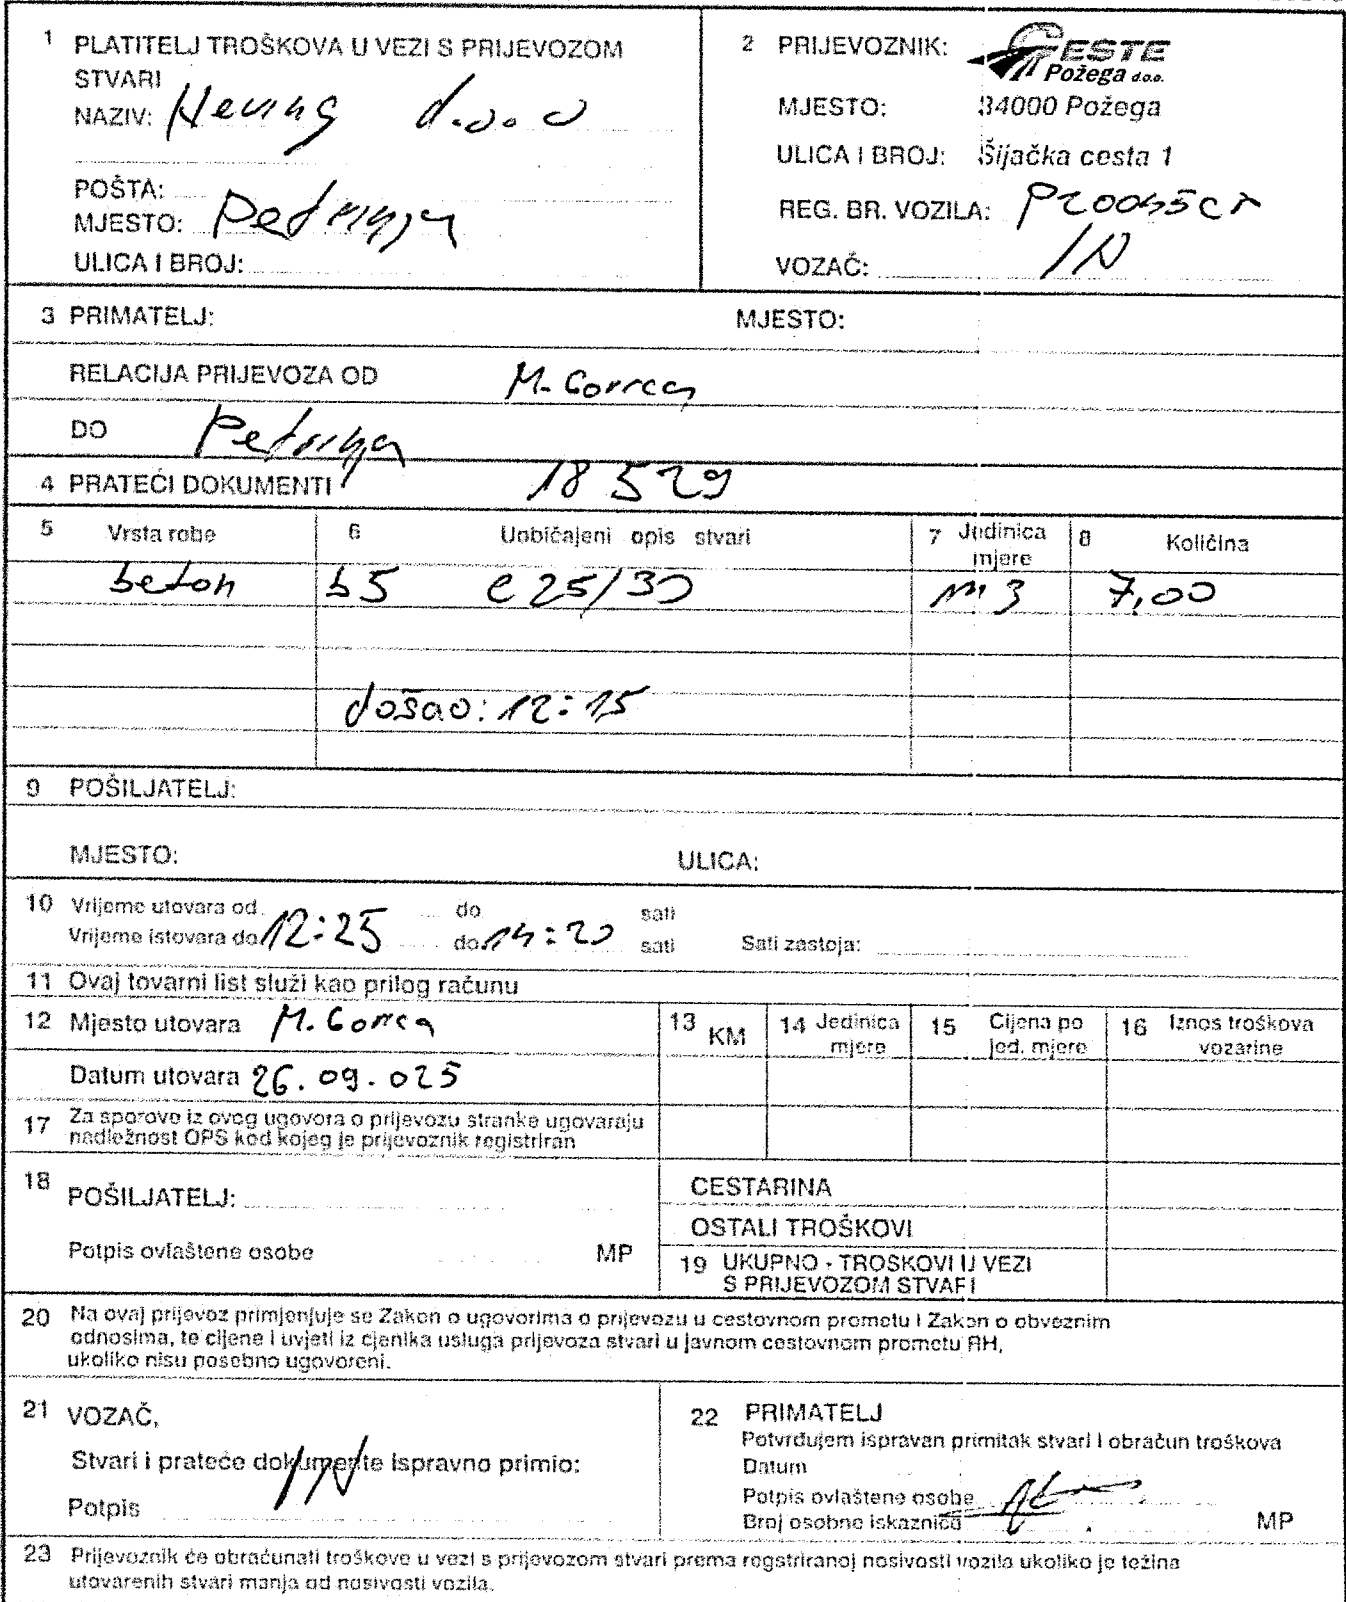 1 PLATITELJ TROŠKOVA U VEZI S PRIJEVOZOM
STVARI
NAZIV: Hering d.o.o
POŠTA:
MJESTO: Petrinja
ULICA I BROJ:
2 PRIJEVOZNIK: CESTE
Požega d.o.o.
MJESTO: 34000 Požega
ULICA I BROJ: Šijačka cesta 1
REG. BR. VOZILA:
VOZAČ: IN
3 PRIMATELJ: MJESTO:
RELACIJA PRIJEVOZA OD M. Gorica
DO Petrinja
4 PRATEĆI DOKUMENTI 18529
5 Vrsta robe 6 Uobičajeni opis stvari 7 Jedinica mjere 8 Količina
beton b5 C25/30 m3 7,00
došao: 12:15
9 POŠILJATELJ:
MJESTO: ULICA:
10 Vrijeme utovara od do sati
Vrijeme istovara do 12:25 do 14:20 sati Sati zastoja:
11 Ovaj tovarni list služi kao prilog računu
12 Mjesto utovara M. Gorica
Datum utovara 26.09.025
13 KM 14 Jedinica mjere 15 Cijena po jed. mjere 16 Iznos troškova vozarine
17 Za sporove iz ovog ugovora o prijevozu stranke ugovaraju
nadležnost OPS kod kojeg je prijevoznik registriran
18 POŠILJATELJ:
Potpis ovlaštene osobe MP
CESTARINA
OSTALI TROŠKOVI
19 UKUPNO - TROSKOVI U VEZI
S PRIJEVOZOM STVARI
20 Na ovaj prijevoz primjenjuje se Zakon o ugovorima o prijevozu u cestovnom prometu i Zakon o obveznim
odnosima, te cijene i uvjeti iz cjenika usluga prijevoza stvari u javnom cestovnom prometu RH,
ukoliko nisu posebno ugovoreni.
21 VOZAČ,
Stvari i prateće dokumente ispravno primio:
Potpis IN
22 PRIMATELJ
Potvrđujem ispravan primitak stvari i obračun troškova
Datum
Potpis ovlaštene osobe
Broj osobne iskaznice MP
23 Prijevoznik će obračunati troškove u vezi s prijevozom stvari prema regstriranoj nosivosti vozila ukoliko je težina
utovarenih stvari manja od nosivosti vozila.